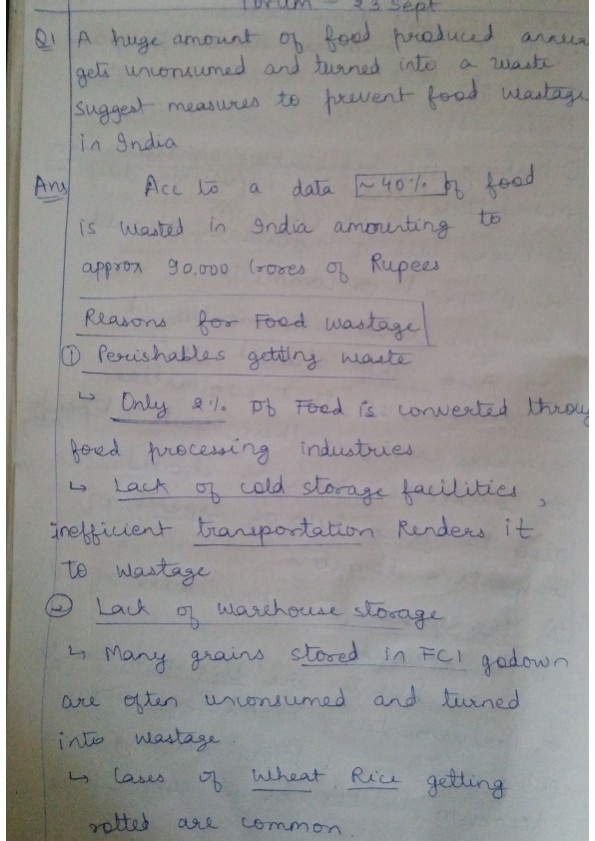 Forum - 23 Sept
Q1 A huge amount of food produced
gets unconsumed and turned into a waste
suggest measures to prevent food wastage
in India
Ans Acc to a data ~40% of food
is wasted in India amounting to
approx 90,000 Crores of Rupees
Reasons for Food wastage
① Perishables getting waste
↳ Only 2% of Food is converted throu
food processing industries
↳ Lack of cold storage facilities,
inefficient transportation Renders it
to wastage.
② Lack of warehouse storage
↳ Many grains stored in FCI godown
are often unconsumed and turned
into wastage.
↳ Cases of Wheat, Rice getting
rotted are common.